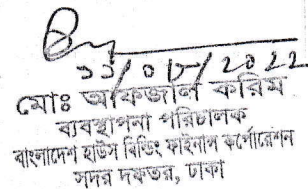 ২২/০৮/2022
মোঃ আফজাল করিম
ব্যবস্থাপনা পরিচালক
বাংলাদেশ হাউস বিল্ডিং ফাইনান্স কর্পোরেশন
সদর দফতর, ঢাকা